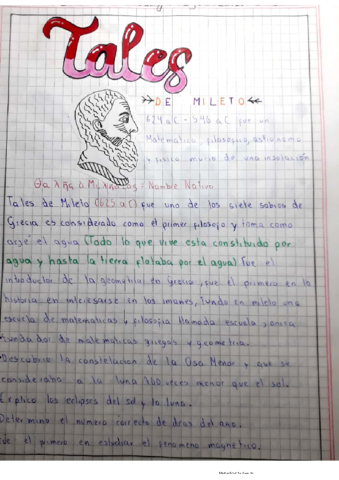 Tales
DE MILETO
624 a.C - 546 a.C fue un
Matematico, filosofico, astronomo
y fisico murio de una insolación
Θαλῆς ὁ Μιλήσιος = Nombre Nativo
Tales de Mileto (625 a C) fue uno de los siete sabios de
Grecia es considerado como el primer filosofo y toma como
arjé el agua (Todo lo que vive esta constituido por
agua y hasta la tierra flotaba por el agua) Fue el
introductor de la geometria en Grecia, fue el primero en la
historia en interesarse en los imanes, fundo en mileto una
escuela de matematicas y filosofia llamada escuela jonica
fundador de matematicas griegas y geometria.
Descubrio la constelacion de la Osa Menor y que se
consideraba a la luna 700 veces menor que el sol.
Explico los eclipses del sol y la luna.
Determino el número correcto de dias del año.
Fue el primero en estudiar el fenomeno magnetico.